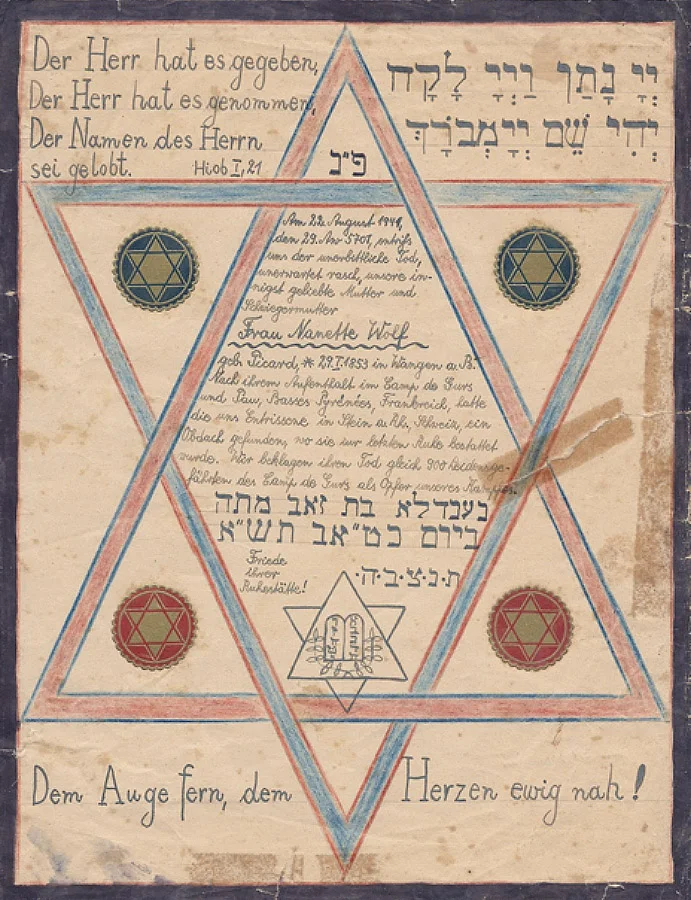 Der Herr hat es gegeben,
Der Herr hat es genommen,
Der Namen des Herrn
sei gelobt. Hiob I,21
יְיָ נָתַן וַיְיָ לָקָח
יְהִי שֵׁם יְיָ מְבֹרָךְ
פ״נ
Am 22. August 1941,
den 29. Aw 5701, entriss
uns der unerbittliche Tod,
unerwartet rasch, unsere in-
nigst geliebte Mutter und
Schwiegermutter
Frau Nanette Wolf
geb. Picard, * 29.I.1853 in Wangen a. B.
Nach ihrem Aufenthalt im Camp de Gurs
und Pau, Basses Pyrénées, Frankreich, hatte
die uns Entrissene in Stein a. Rh., Schweiz, ein
Obdach gefunden, wo sie zur letzten Ruhe bestattet
wurde. Wir beklagen ihren Tod gleich 900 Leidensge-
fährten des Camp de Gurs als Opfer unseres
בת זאב מתה
ביום כט״אב תש״א
Friede
ihrer
Ruhestätte!
ת·נ·צ·ב·ה·
Dem Auge fern, dem Herzen ewig nah!